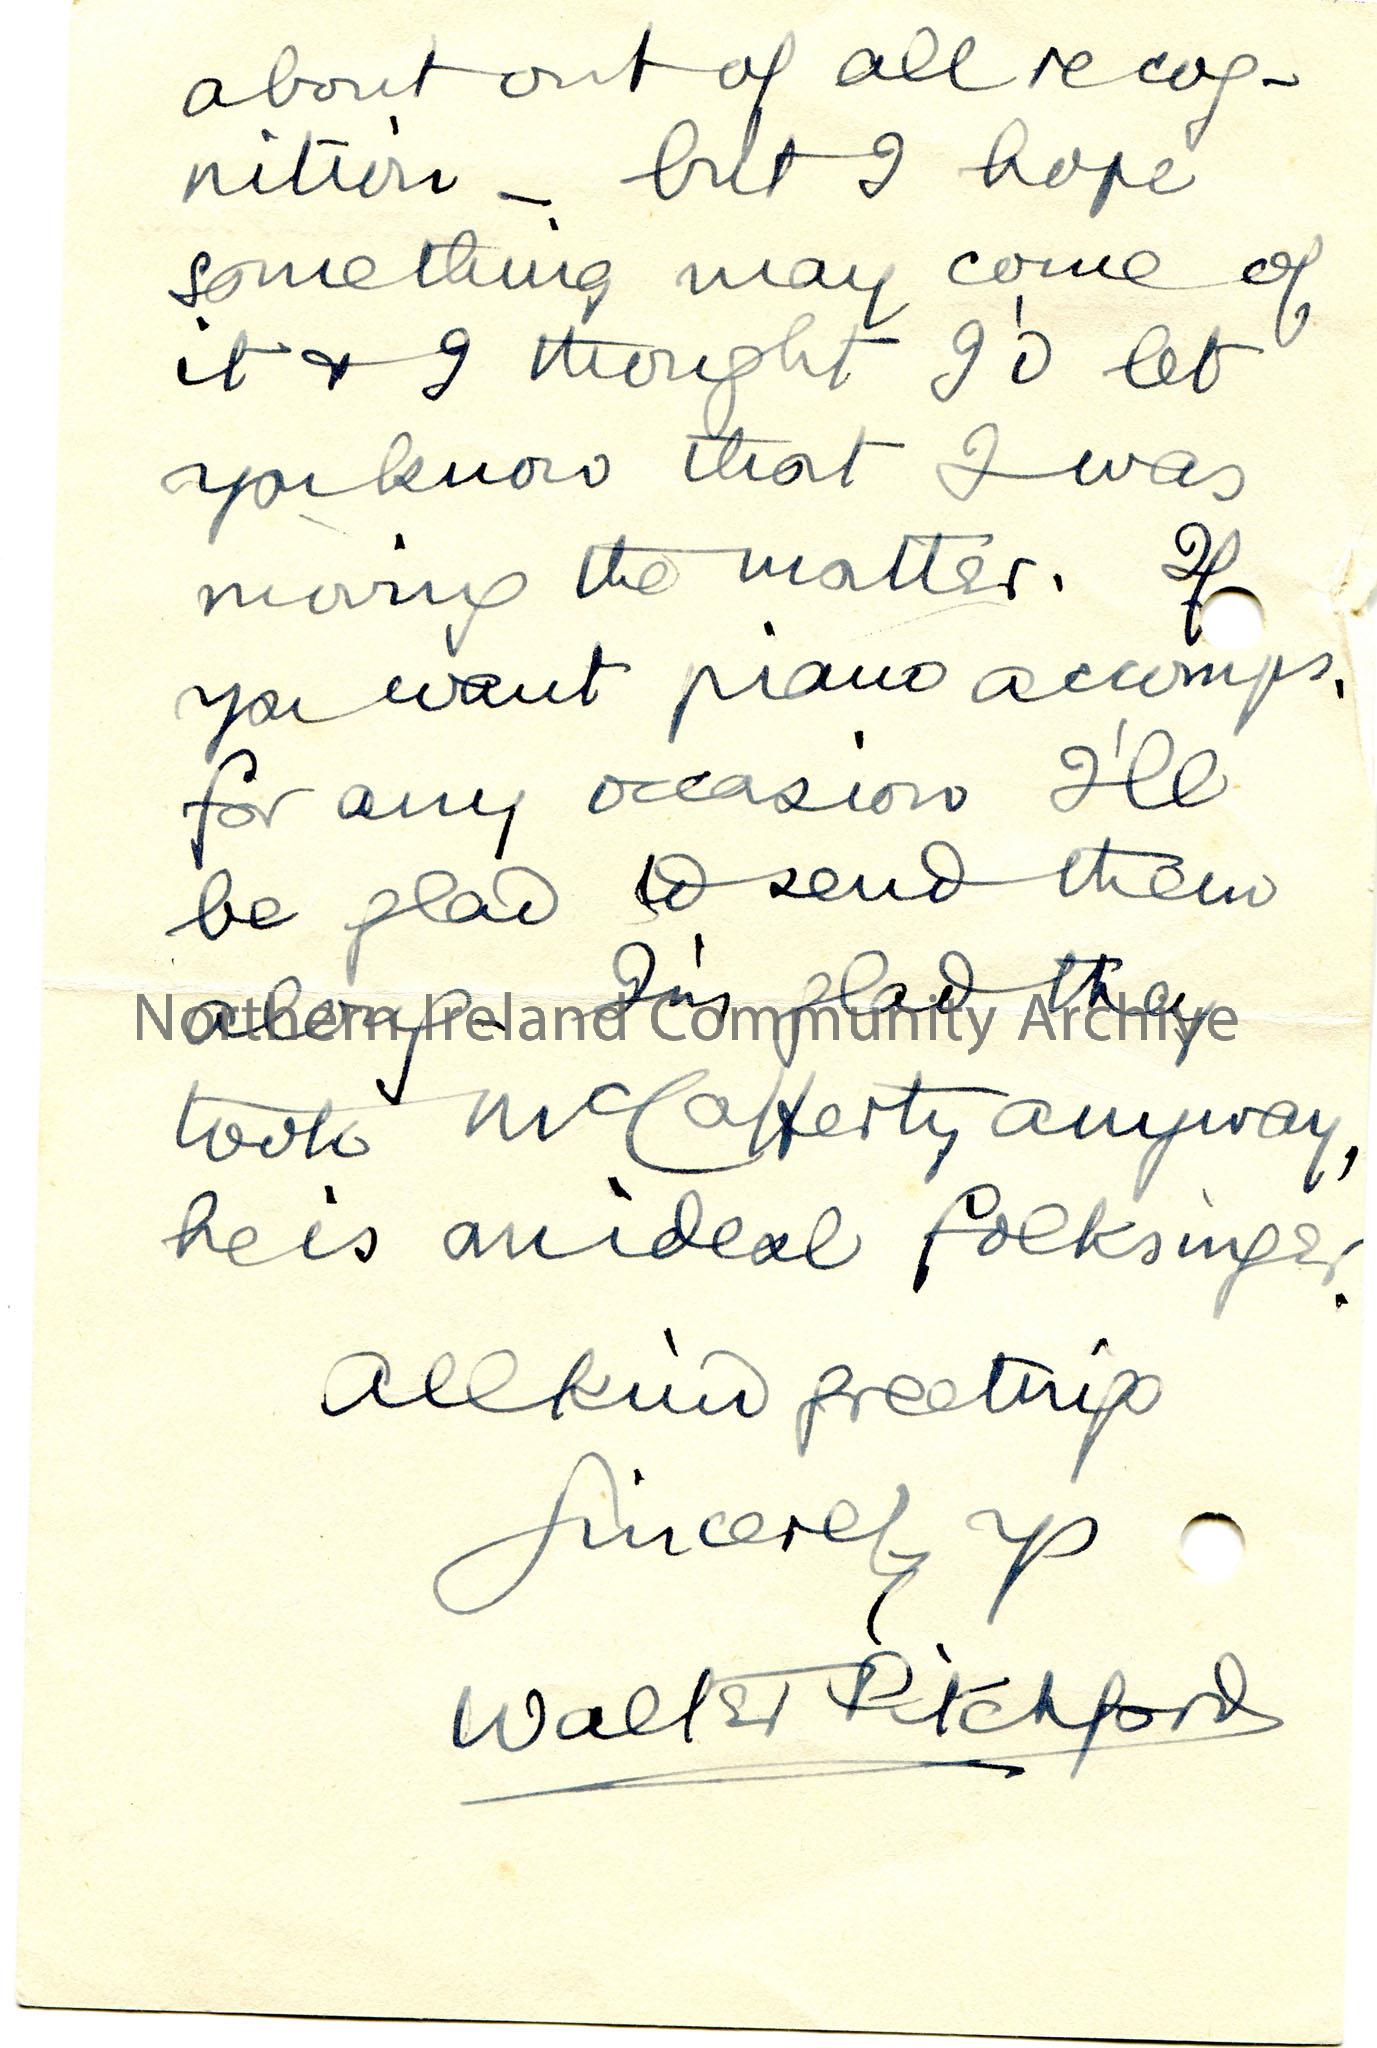 about out of all recog-
nition – but I hope
something may come of
it & I thought I'd let
you know that I was
moving the matter. If
you want piano accomps.
for any occasion I'll
be glad to send them
along – I'm glad they
Northern Ireland Community Archive
took McCafferty anyway,
he is an ideal folksinger.
All kind greetings
Sincerely yrs
Walter Pitchford